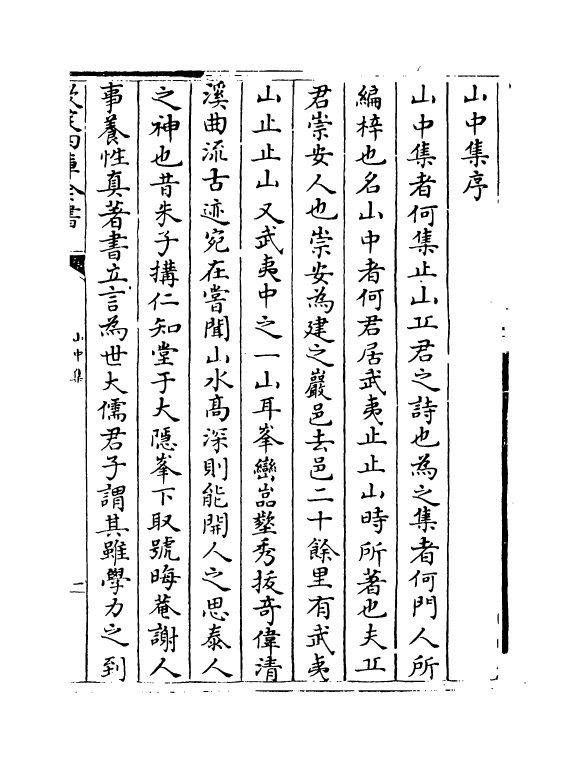 山中集序
山中集者何集止山丘君之詩也為之集者何門人所
編梓也名山中者何君居武夷止止山時所著也夫丘
君崇安人也崇安為建之巖邑去邑二十餘里有武夷
山止止山又武夷中之一山耳峯巒嵓壑秀拔奇偉清
溪曲流古迹宛在嘗聞山水髙深則能開人之思泰人
之神也昔朱子搆仁知堂于大隱峯下取號晦菴謝人
事養性真著書立言為世大儒君子謂其雖學力之到
欽定四庫全書
山中集